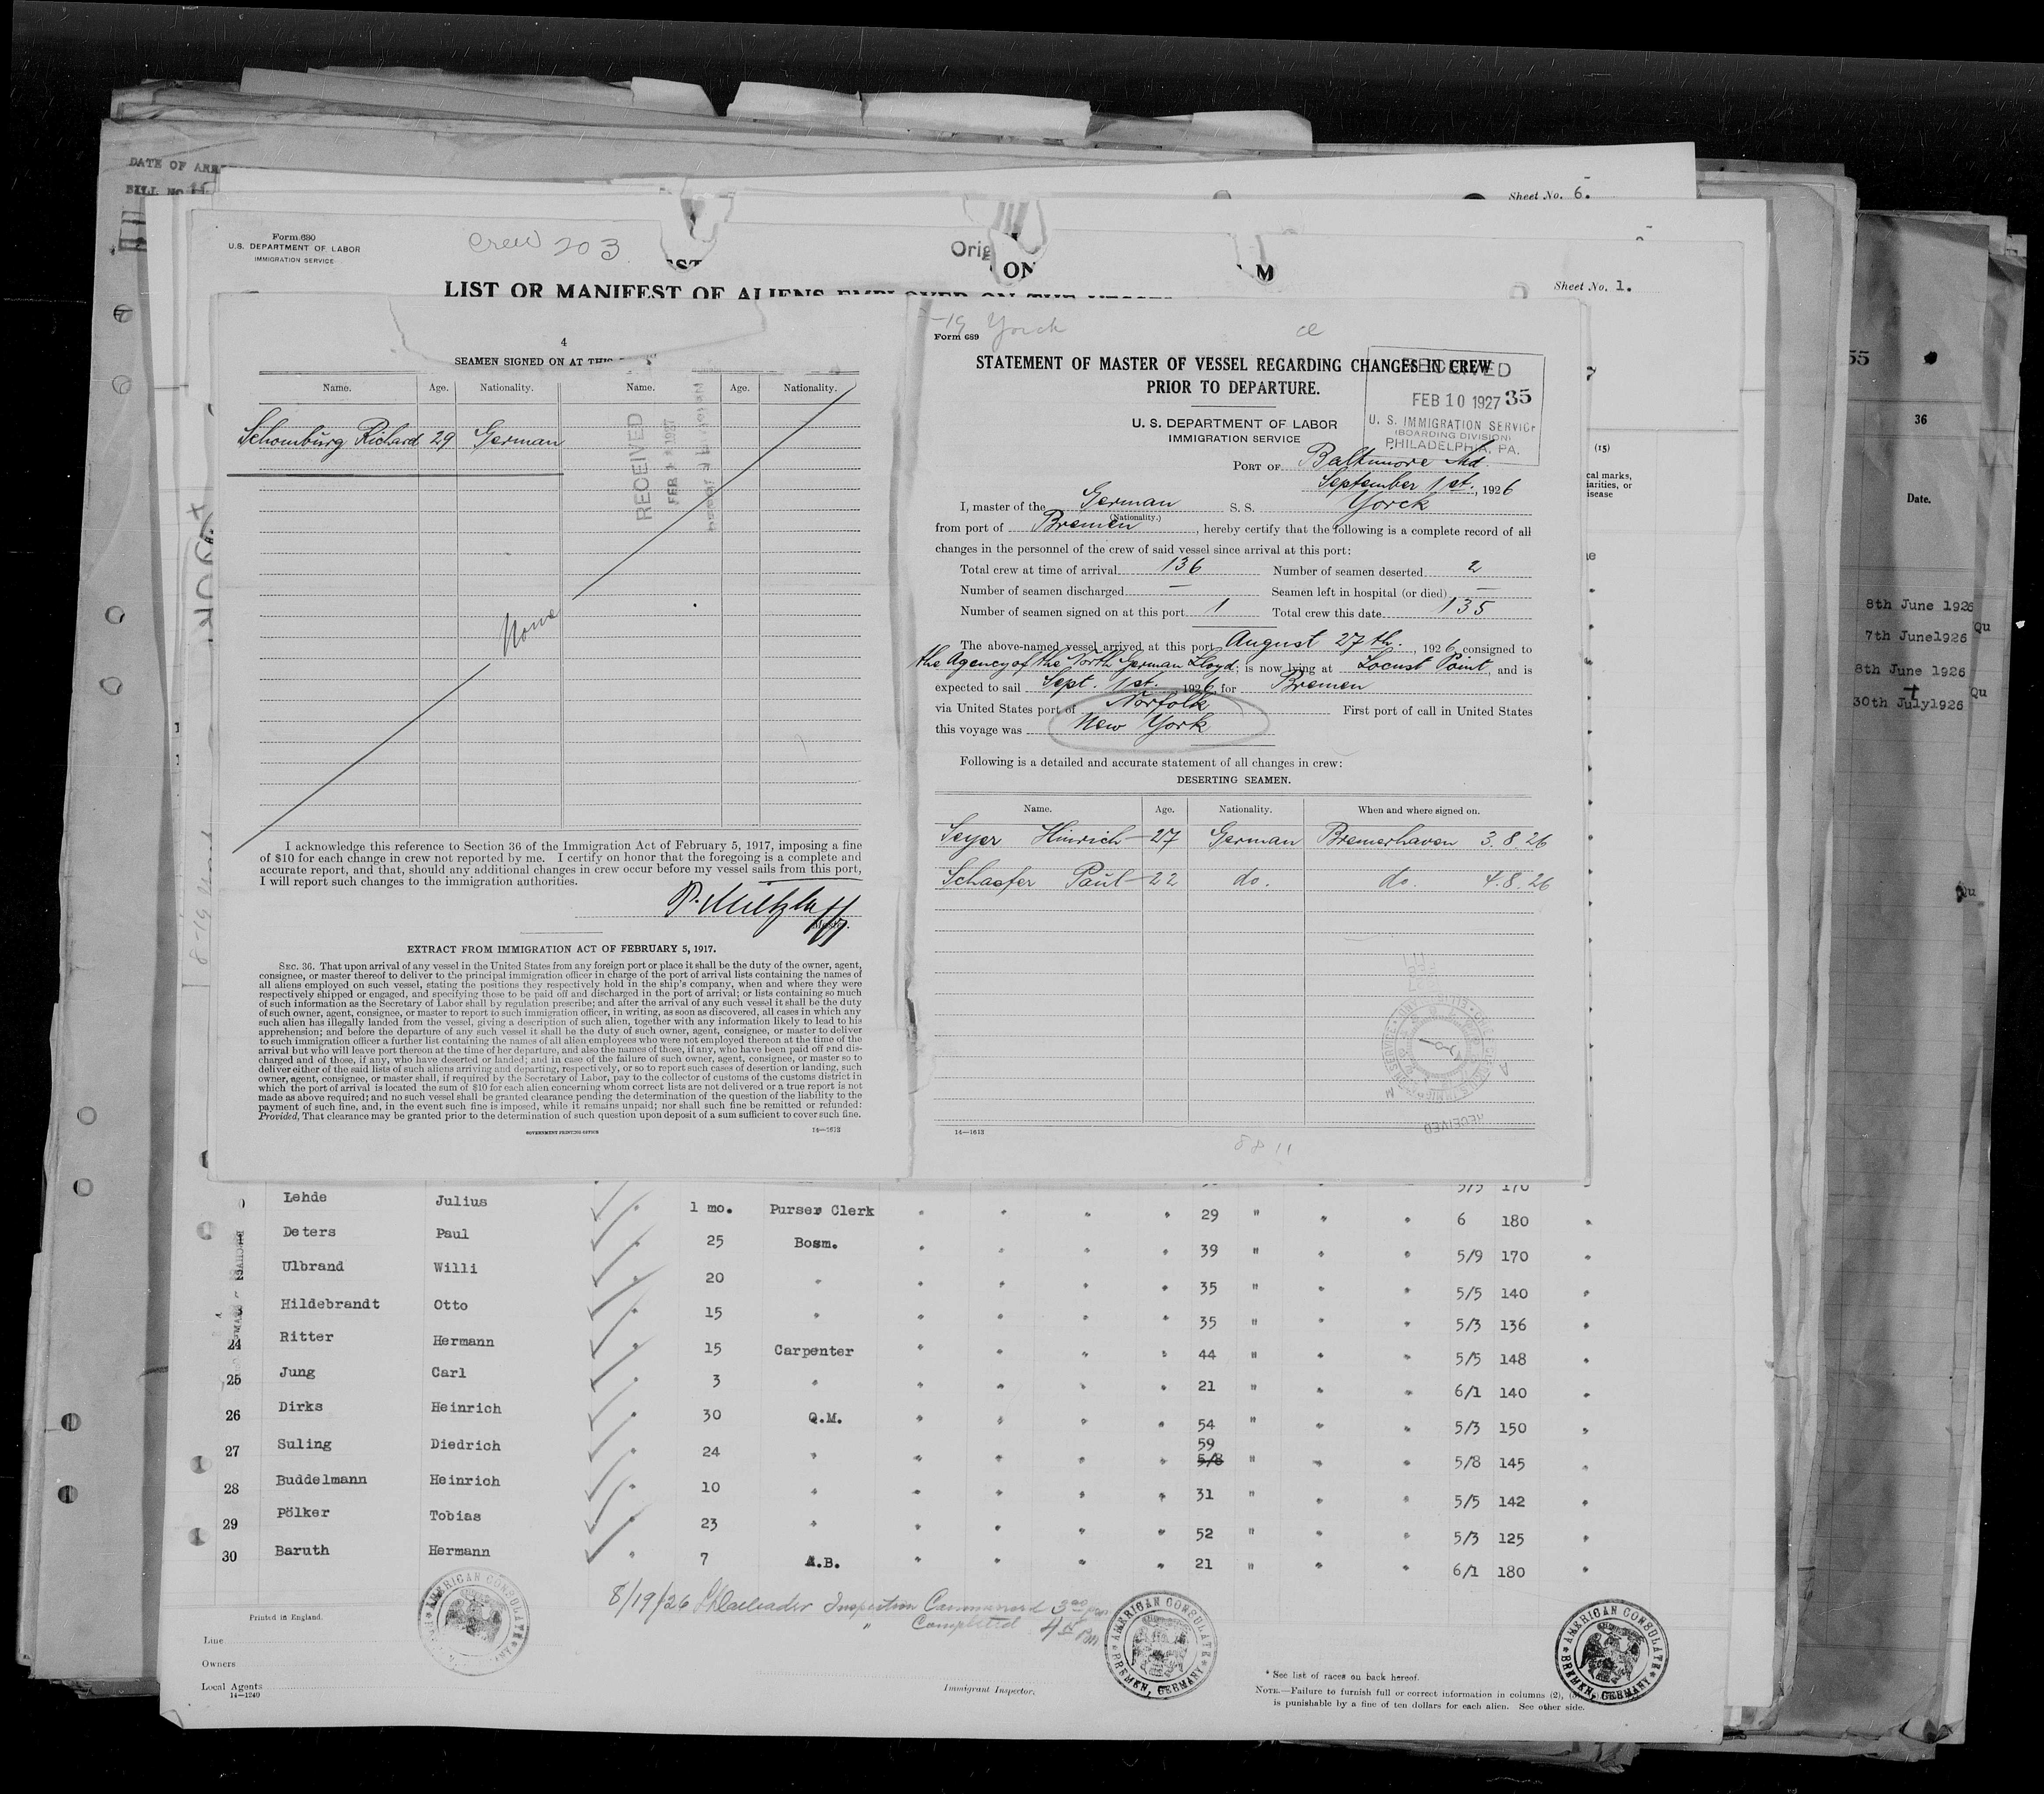 DATE OF
BILL NO
Sheet No. 6.
Form 680
U.S. DEPARTMENT OF LABOR
IMMIGRATION SERVICE
Crew 203
Orig
ON
M
LIST OR MANIFEST OF ALIENS EMPLOYED ON THE VESSEL
Sheet No. 1.
4
SEAMEN SIGNED ON AT THIS
Name. Age. Nationality. Name. Age. Nationality.
Schomburg Richard 29 German
RECEIVED
FEB 1927
None
I acknowledge this reference to Section 36 of the Immigration Act of February 5, 1917, imposing a fine
of $10 for each change in crew not reported by me. I certify on honor that the foregoing is a complete and
accurate report, and that, should any additional changes in crew occur before my vessel sails from this port,
I will report such changes to the immigration authorities.
Master.
EXTRACT FROM IMMIGRATION ACT OF FEBRUARY 5, 1917.
SEC. 36. That upon arrival of any vessel in the United States from any foreign port or place it shall be the duty of the owner, agent,
consignee, or master thereof to deliver to the principal immigration officer in charge of the port of arrival lists containing the names of
all aliens employed on such vessel, stating the positions they respectively hold in the ship's company, when and where they were
respectively shipped or engaged, and specifying those to be paid off and discharged in the port of arrival; or lists containing so much
of such information as the Secretary of Labor shall by regulation prescribe; and after the arrival of any such vessel it shall be the duty
of such owner, agent, consignee, or master to report to such immigration officer, in writing, as soon as discovered, all cases in which any
such alien has illegally landed from the vessel, giving a description of such alien, together with any information likely to lead to his
apprehension; and before the departure of any such vessel it shall be the duty of such owner, agent, consignee, or master to deliver
to such immigration officer a further list containing the names of all alien employees who were not employed thereon at the time of the
arrival but who will leave port thereon at the time of her departure, and also the names of those, if any, who have been paid off and dis-
charged and of those, if any, who have deserted or landed; and in case of the failure of such owner, agent, consignee, or master so to
deliver either of the said lists of such aliens arriving and departing, respectively, or so to report such cases of desertion or landing, such
owner, agent, consignee, or master shall, if required by the Secretary of Labor, pay to the collector of customs of the customs district in
which the port of arrival is located the sum of $10 for each alien concerning whom correct lists are not delivered or a true report is not
made as above required; and no such vessel shall be granted clearance pending the determination of the question of the liability to the
payment of such fine, and, in the event such fine is imposed, while it remains unpaid; nor shall such fine be remitted or refunded:
Provided, That clearance may be granted prior to the determination of such question upon deposit of a sum sufficient to cover such fine.
GOVERNMENT PRINTING OFFICE
14—1613
19 Yorck
Form 689
STATEMENT OF MASTER OF VESSEL REGARDING CHANGES IN CREW
PRIOR TO DEPARTURE.
RECEIVED
FEB 10 1927 35
U. S. IMMIGRATION SERVICE
(BOARDING DIVISION)
PHILADELPHIA, PA.
U. S. DEPARTMENT OF LABOR
IMMIGRATION SERVICE
PORT OF Baltimore Md.
September 1st., 1926
I, master of the German S. S. Yorck
(Nationality.)
from port of Bremen, hereby certify that the following is a complete record of all
changes in the personnel of the crew of said vessel since arrival at this port:
Total crew at time of arrival 136 Number of seamen deserted 2
Number of seamen discharged — Seamen left in hospital (or died) —
Number of seamen signed on at this port 1 Total crew this date 135
The above-named vessel arrived at this port August 27th., 1926, consigned to
the Agency of the North German Lloyd; is now lying at Locust Point, and is
expected to sail Sept. 1st., 1926, for Bremen
via United States port of Norfolk First port of call in United States
this voyage was New York
Following is a detailed and accurate statement of all changes in crew:
DESERTING SEAMEN.
Name. Age. Nationality. When and where signed on.
Seyer Hinrich 27 German Bremerhaven 3.8.26
Schaefer Paul 22 do. do. 4.8.26
RECEIVED
14—1613
(15)
55
36
Date.
8th June 1926 Qu
7th June1926
8th June 1926 Qu
30th July1926
Qu
5/5 170
Lehde Julius 1 mo. Purser Clerk 29 " 6 180
Deters Paul 25 Bosm. 39 " 5/9 170
Ulbrand Willi 20 " 35 " 5/5 140
Hildebrandt Otto 15 " 35 " 5/3 136
24 Ritter Hermann 15 Carpenter 44 " 5/5 148
25 Jung Carl 3 " 21 " 6/1 140
26 Dirks Heinrich 30 Q.M. 54 " 5/3 150
27 Suling Diedrich 24 " 59 5/8 " 5/8 145
28 Buddelmann Heinrich 10 " 31 " 5/5 142
29 Pölker Tobias 23 " 52 " 5/3 125
30 Baruth Hermann 7 A.B. 21 " 6/1 180
8/19/26 Inspection Commenced 3 00 pm
" Completed 4 15 pm
AMERICAN CONSULATE
AMERICAN CONSULATE BREMEN, GERMANY
AMERICAN CONSULATE BREMEN, GERMANY
Printed in England.
Line
Owners
Local Agents
14—1240
Immigrant Inspector.
* See list of races on back hereof.
NOTE.—Failure to furnish full or correct information in columns (2),
is punishable by a fine of ten dollars for each alien. See other side.